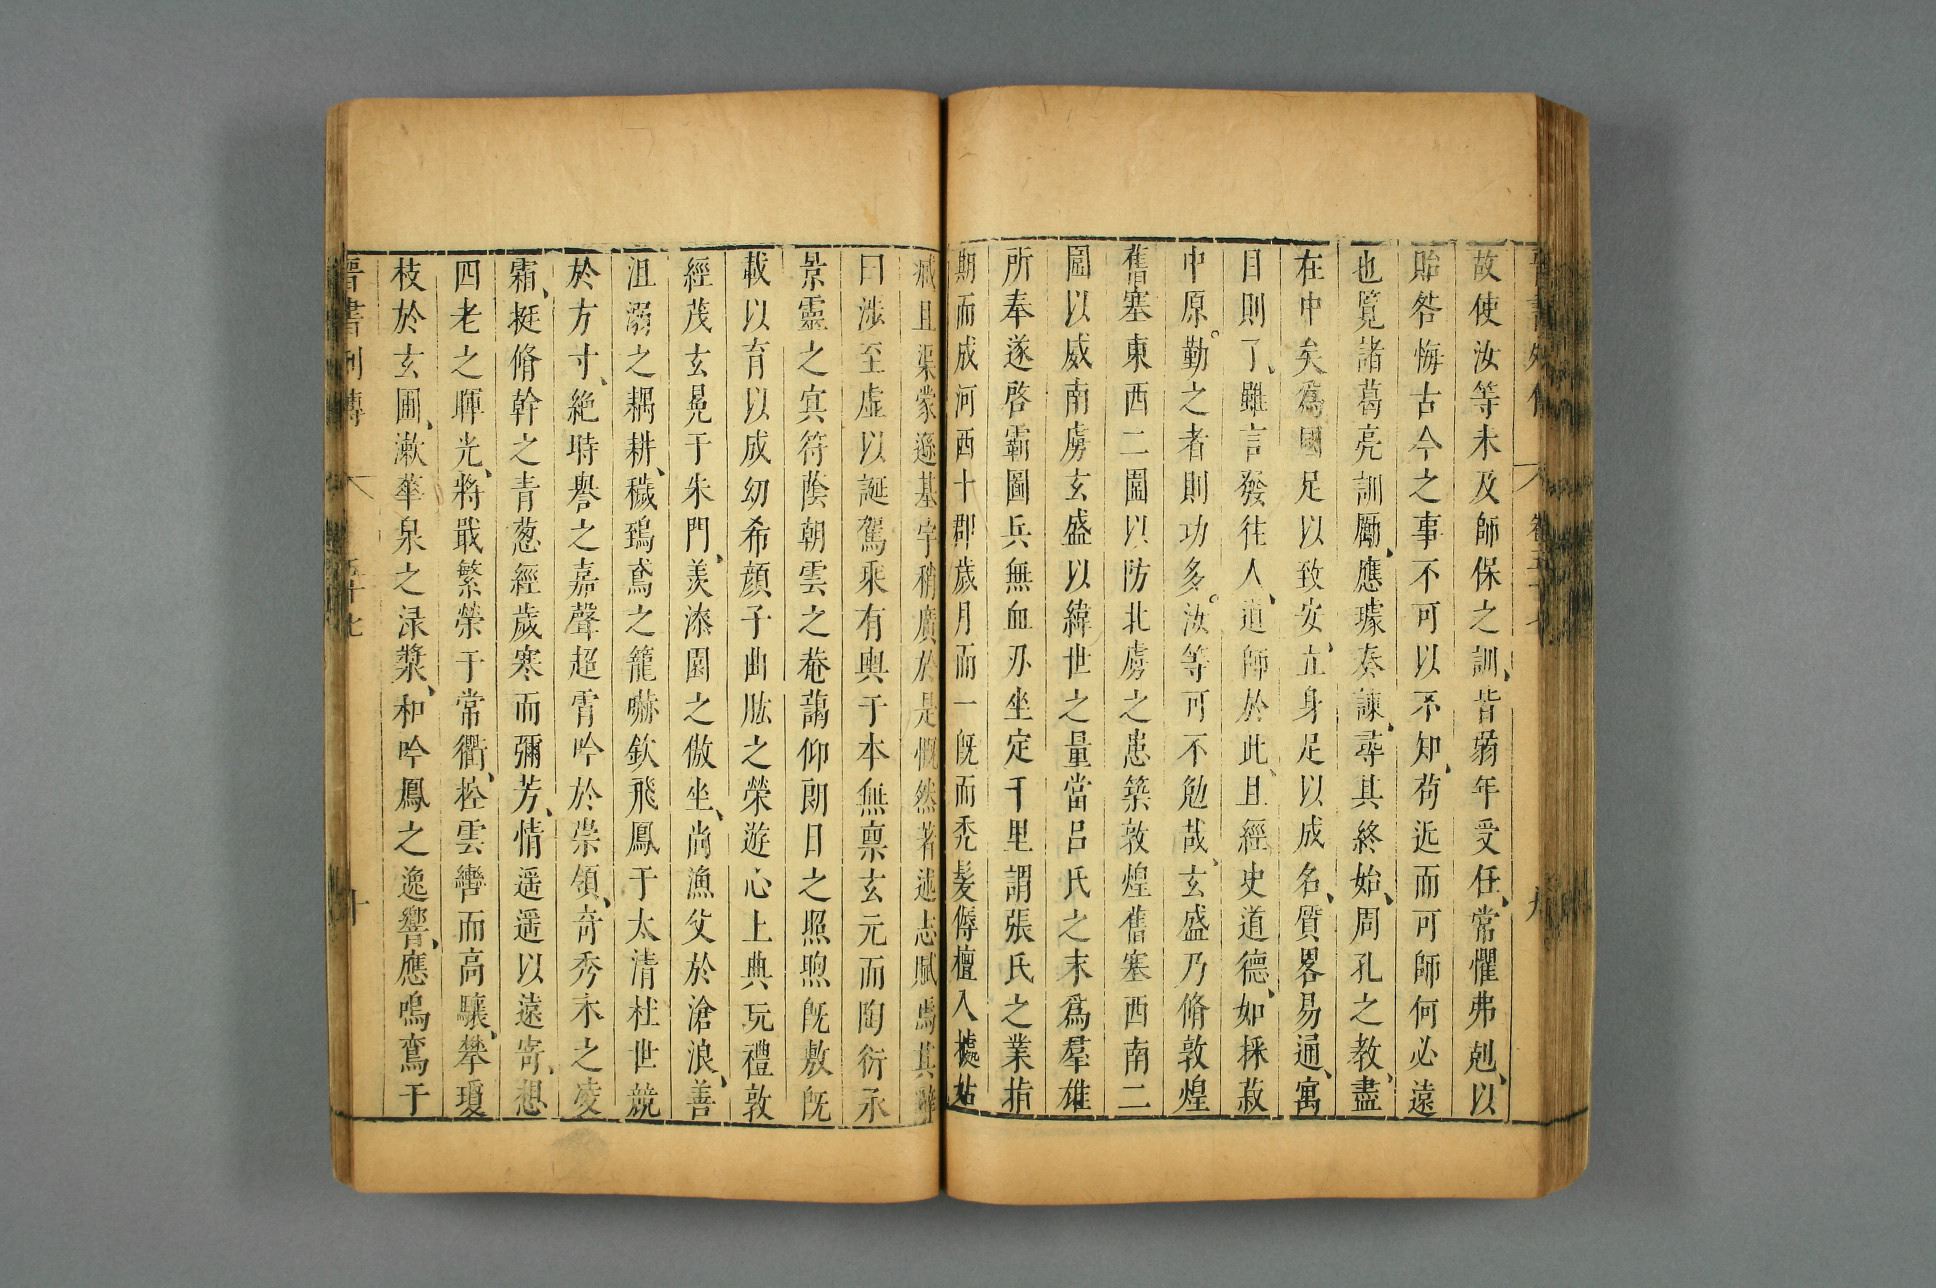 晉書列傳 卷五十七 九
故使汝等未及師保之訓皆弱年受任常懼弗剋以
貽咎悔古今之事不可以不知苟近而可師何必遠
也覧諸葛亮訓勵應璩奏諫尋其終始周孔之教盡
在中矣為國足以致安立身足以成名質畧易通寓
目則了雖言發往人道師於此且經史道德如採菽
中原勤之者則功多汝等可不勉哉玄盛乃脩敦煌
舊塞東西二圍以防北虜之患築敦煌舊塞西南二
圍以威南虜玄盛以緯世之量當呂氏之末為羣雄
所奉遂啓霸圖兵無血刃坐定千里謂張氏之業指
期而成河西十郡歲月而一旣而禿髮傉檀入據姑
臧且渠蒙遜基宇稍廣於是慨然著述志賦焉其辭
曰涉至虛以誕駕乘有輿于本無稟玄元而陶衍承
景靈之寘符蔭朝雲之菴藹仰朗日之照煦旣敷旣
載以育以成幼希顔子曲肱之榮遊心上典玩禮敦
經茂玄冕于朱門羨漆園之傲坐尚漁父於滄浪善
沮溺之耦耕穢鵄鳶之籠嚇欽飛鳳于太清杜世競
於方寸絶時譽之嘉聲超霄吟於崇領奇秀木之凌
霜挺脩幹之青葱經歲寒而彌芳情遥遥以遠寄想
四老之暉光將戢繁榮于常衢控雲轡而高驤攀瓊
枝於玄圃漱華泉之渌漿和吟鳳之逸響應鳴鸞于
晉書列傳 五十七 十